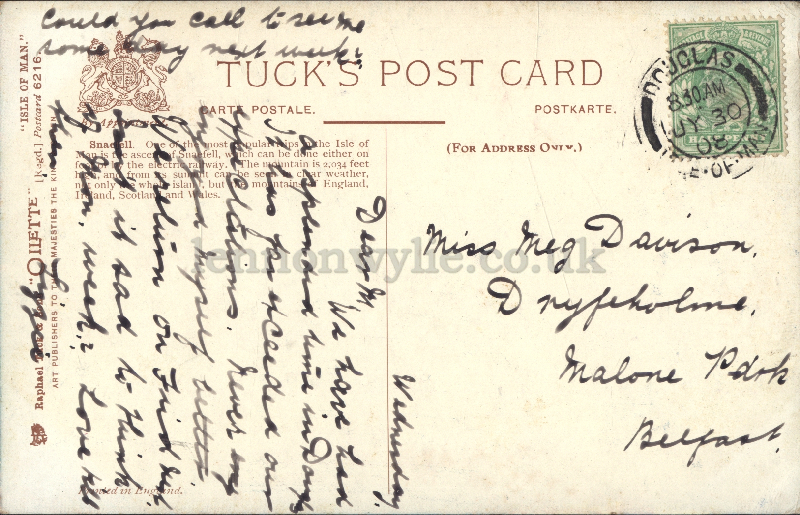 Could you call to see me
some day next week?
TUCK'S POST CARD
CARTE POSTALE.
POSTKARTE.
(FOR ADDRESS ONLY.)
By Appointment.
Snaefell. One of the most popular trips in the Isle of
Man is the ascent of Snaefell, which can be done either on
foot or by the electric railway. (The mountain is 2,034 feet
high, and from its summit can be seen in clear weather,
not only the whole island, but the mountains of England,
Ireland, Scotland and Wales.
"ISLE OF MAN."
[Regd.] Postcard 6216.
"OILETTE"
Raphael Tuck & Sons'
ART PUBLISHERS TO THEIR MAJESTIES THE KING
Printed in England.
DOUGLAS
8.30 AM
JY 30
08
ISLE-OF-MAN
HALFPENNY
Miss Meg Davison,
Dryfeholme,
Malone Pdrk
Belfast.
Wednesday.
Dear M
We have had
a splendid time in
It has far exceeded our
expectations. Never
enjoyed myself better
We return on Friday.
it sad to think
week? Love
from
lennonwylie.co.uk